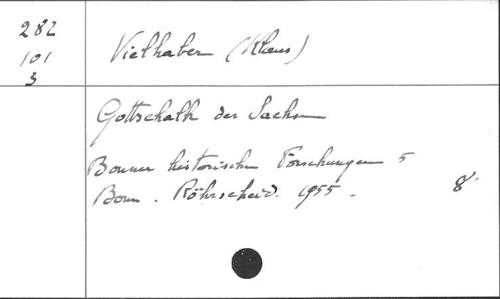 282
101
3
Vielhaber (Klaus)
Gottschalk der Sachse
Bonner historische Forschungen 5
Bonn. Röhrscheid. 1955.
8°